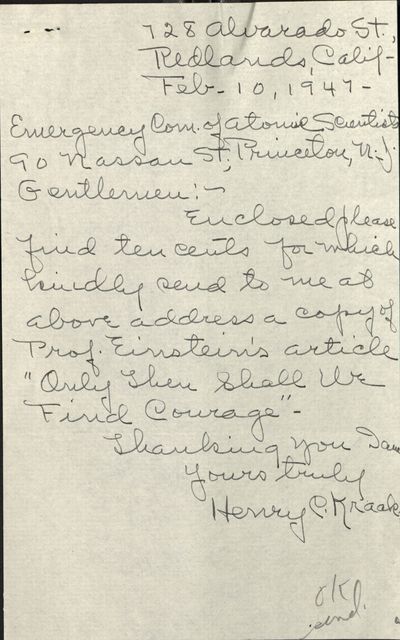 728 Alvarado St.,
Redlands, Calif-
Feb- 10, 1947-
Emergency Com. of Atomic Scientists
90 Nassau St., Princeton, N.J.
Gentlemen:-
Enclosed please
find ten cents for which
kindly send to me at
above address a copy of
Prof. Einstein's article
"Only Then Shall We
Find Courage"-
Thanking you I am
Yours truly
Henry C. Kraak
OK